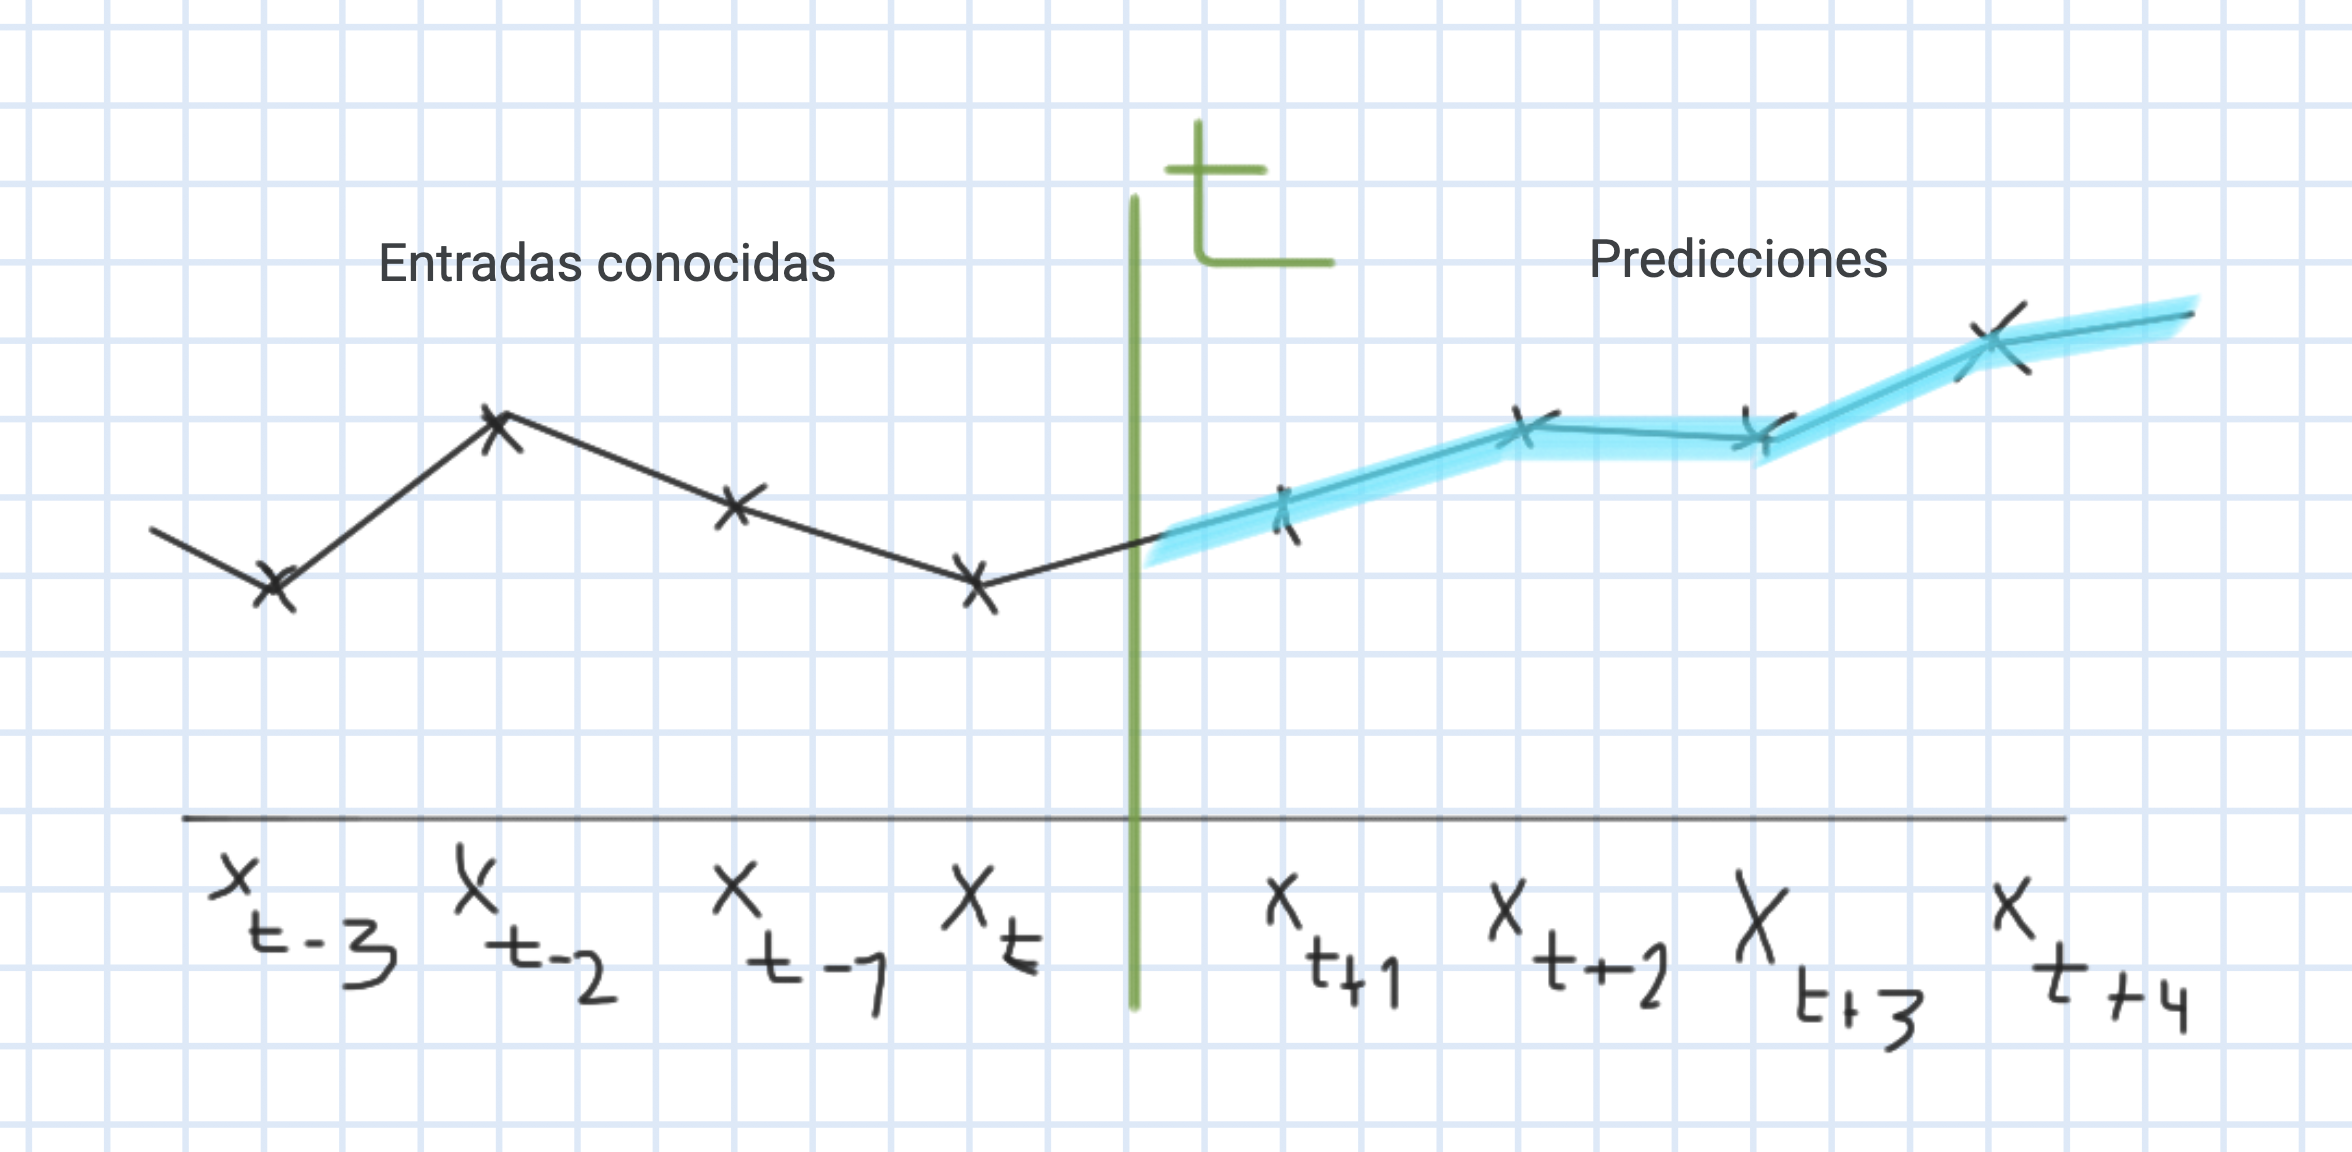 t
Entradas conocidas
Predicciones
x t-3 x t-2 x t-1 x t x t+1 x t+2 x t+3 x t+4